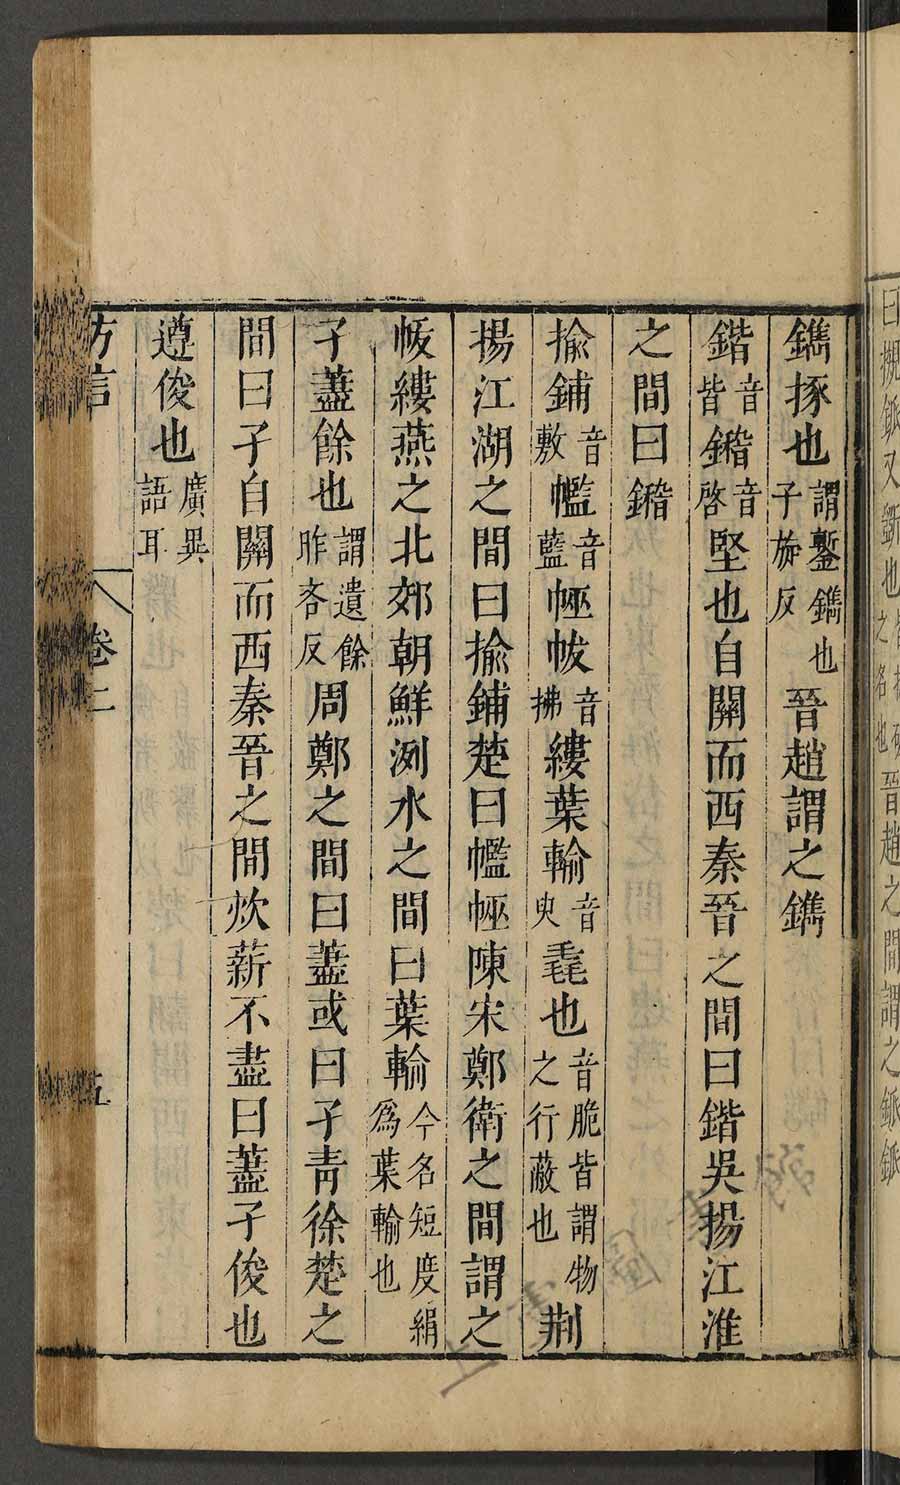 曰摫鈲又斲也皆析破之名也晉趙之間謂之鈲鈲
鐫㧻也謂鏨鐫也子旋反晉趙謂之鐫
鍇音皆䥯音啓堅也自關而西秦晉之間曰鍇吳揚江淮
之間曰䥯
揄鋪音敷㡓音藍帗音拂縷葉輸音臾毳也音脆皆謂物之行蔽也荆
揚江湖之間曰揄鋪楚曰㡓陳宋鄭衛之間謂之
帗縷燕之北郊朝鮮洌水之間曰葉輸今名短度絹爲葉輸也
孑藎餘也謂遺餘昨吝反周鄭之間曰藎或曰孑青徐楚之
間曰孑自關而西秦晉之間炊薪不盡曰藎孑俊也
遵俊也廣異語耳
方言 卷二 五